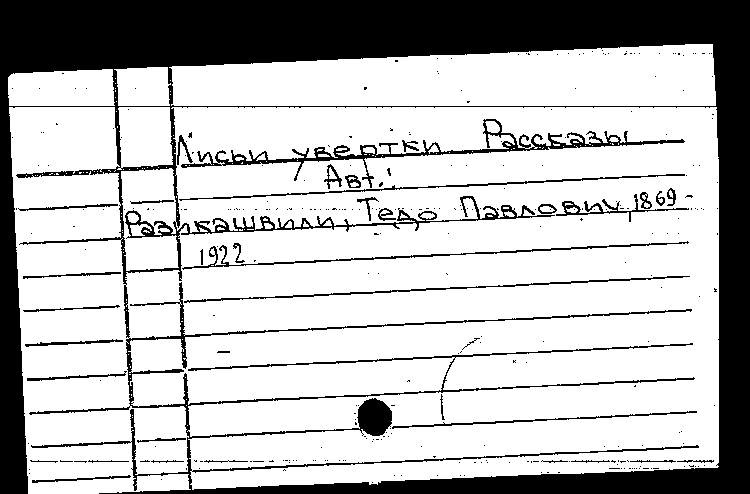 Лисьи увертки. Рассказы
Авт.:
Разикашвили, Тедо Павлович, 1869-
1922.